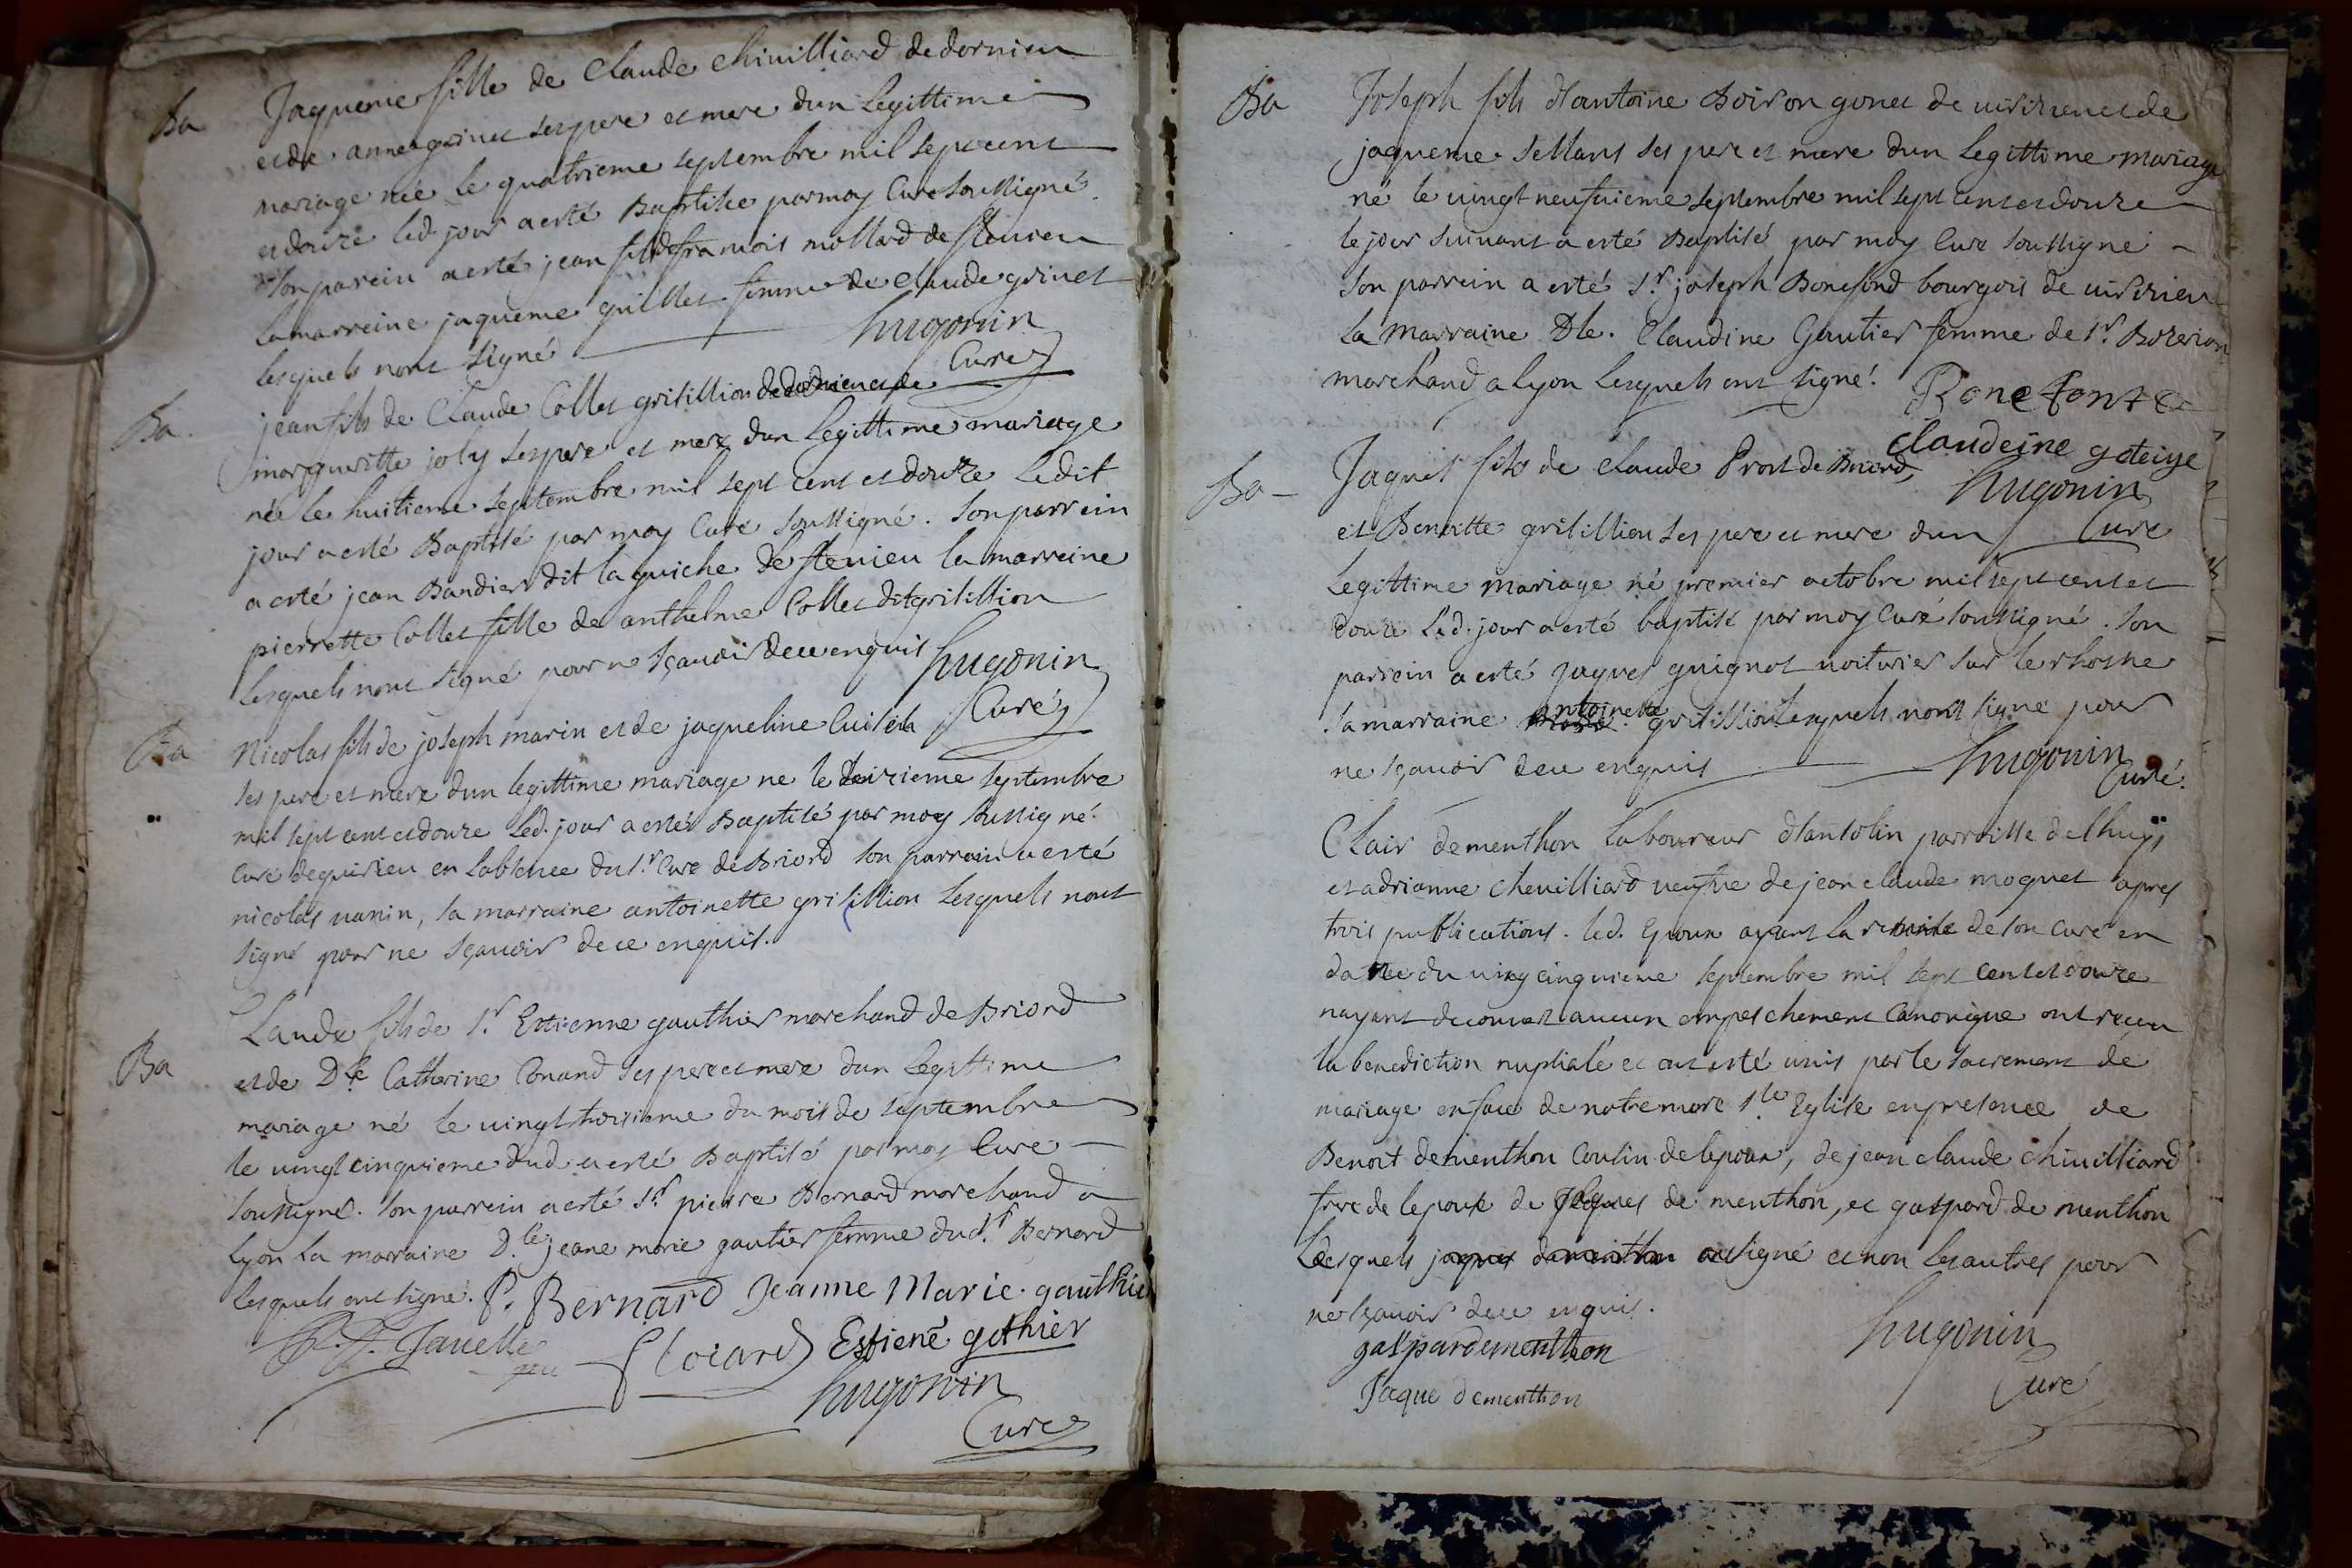 Ba Jaqueme fille de Claude Chivilliard de dornieu
et de anne grinet ses pere et mere dun Legittime
mariage née le quatrieme septembre mil sept cent
et douze led. jour a esté Baptisée par moy Curé soussigné.
Son parein a esté jean fils de francois mollard de flevieu
la marreine jaqueme guillet femme de claude grinet
lesquels nont signé hugonin
Curé
Ba. jean fils de Claude Collet grisillion de et de
margueritte joly ses pere et mere dun Legittime mariage
né le huitieme septembre mil sept cent et douze Ledit
jour a esté Baptisé par moy Curé soussigné. Son parrein
a esté jean Bandier dit la guiche de flevieu la marreine
pierrette Collet fille de anthelme Collet dit grisillion
lesquels nont signé pour ne sçavoir de ce enquis hugonin
Curé
Ba Nicolas fils de joseph marin et de jaqueline
ses pere et mere dun legittime mariage ne le septembre
mil sept cent et douze led. jour a esté Baptisé par moy soussigné
Curé de quirieu en Labsence du Sr. Curé de Briord son parrain a esté
nicolas vanin, sa marraine antoinette grisillion Lesquels nont
signé pour ne sçavoir de ce enquis.
Ba Claude fils de Sr. Estienne gauthier marchand de Briord
et de Dle Catherine Conand ses pere et mere dun Legittime
mariage né le vingt troisieme du mois de septembre
le vingt cinquieme dud. a esté Baptisé par moy Curé
soussigné. Son parrein a esté Sr. pierre Bernard marchand a
Lyon La marraine D.le jeane marie gautier femme dud. Sr. Bernard
lesquels ont signé. P. Bernard Jeanne Marie gauthie
Javelle Clocard Estiene gothier
hugonin
Curé
Ba Joseph fils d'antoine Boiron gonet de virizieu et de
jaqueme sellans ses pere et mere dun Legittime mariage
né le vingt neufvieme septembre mil sept cent et douze
le jour suivant a esté Baptisé par moy Curé soussigné
Son parrein a esté Sr. joseph Bonefond bourgois de virizieu
La Marraine Dle. Claudine Gautier femme de Sr. Bozerion
marchand a Lyon Lesquels ont signé. Bonefont
claudeine goteiye
Ba Jaques fils de Claude Prost de Briord, hugonin
et Benoitte grisillion ses pere et mere dun Curé
Legittime mariage né premier octobre mil sept cent et
douze Led. jour a esté baptisé par moy Curé soussigné. Son
parrein a esté jaques guignot voiturier sur le rhosne
sa marraine antoinette grisillion Lesquels nont signé pour
ne sçavoir de ce enquis hugonin
Curé.
Clair de menthon Laboureur d'antolin parroisse de lhuys
et adrianne chevilliard veufve de jean claude moquet apres
trois publications. led. Epoux ayant la remise de son curé en
datte du ving cinquieme septembre mil sept cent et douze
nayant decouvert aucun empeschement Canonique ont receu
la benediction nuptiale et ont esté unis par le sacrement de
mariage en face de notre mere Ste Eglise en presence de
Benoit de menthon Cousin de lepoux, de jean claude chivilliard
frere de lepouse de jaques de menthon, et gaspard de menthon
Lesquels jaques de menthon ont signé et non les autres pour
ne sçavoir de ce enquis.
gaspardementhon hugonin
Jaque dementhon Curé